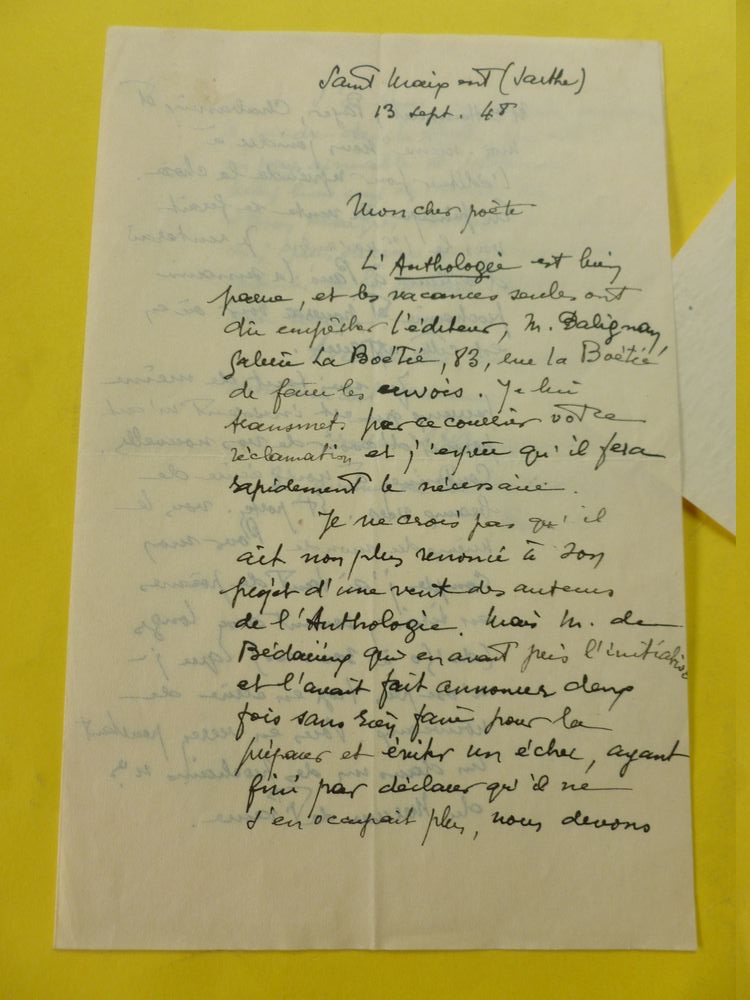 Saint Maixent (Sarthe)
13 sept. 48
Mon cher poète
L'Anthologie est bien
parue, et les vacances seules ont
dû empêcher l'éditeur, M. Dalignay,
galerie La Boëtie, 83, rue la Boëtie
de faire les envois. Je lui
transmets par ce courrier votre
réclamation et j'espère qu'il fera
rapidement le nécessaire.
Je ne crois pas qu'il
ait non plus renoncé à son
projet d'une vente des auteurs
de l'Anthologie. Mais M. de
Bédarieux qui en avait pris l'initiative
et l'avait fait annoncer deux
fois sans rien faire pour la
préparer et éviter un échec, ayant
fini par déclarer qu'il ne
s'en occupait plus, nous devons